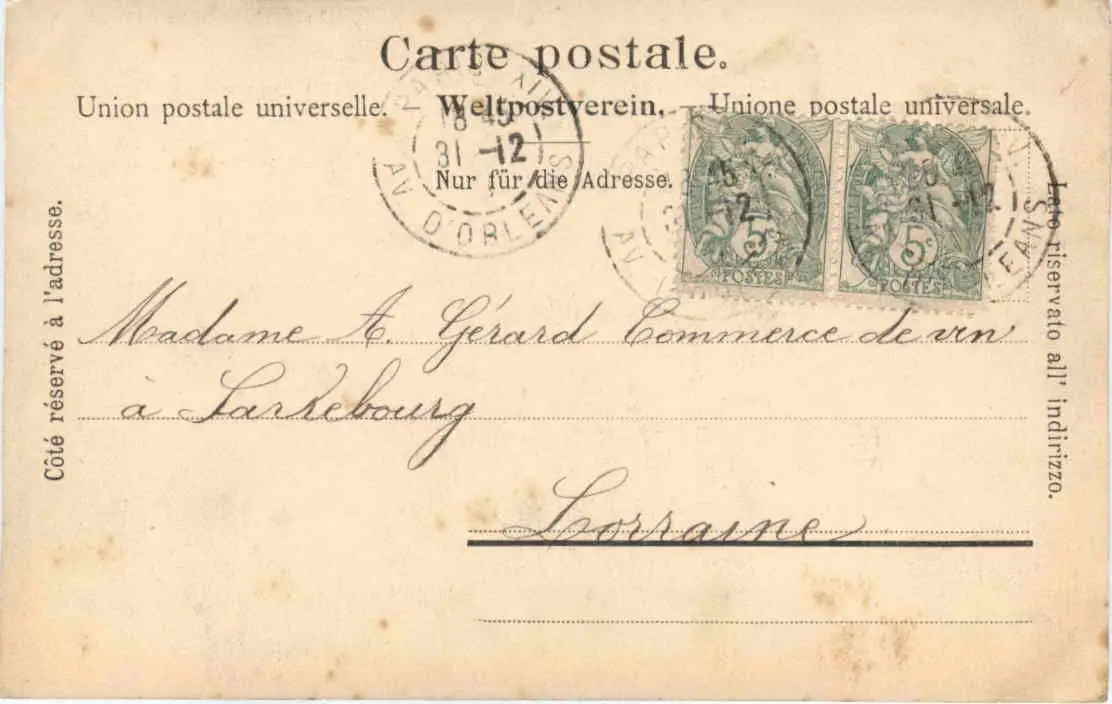 Carte postale.
Union postale universelle. Weltpostverein. — Unione postale universale.
Nur für die Adresse.
Côté réservé à l'adresse.
Lato riservato all' indirizzo.
PARIS XIV
8 45
31 -12
AV. D'ORLEANS
5c
POSTES
5c
POSTES
Madame A. Gérard Commerce de vin
à Sarkebourg
Lorraine